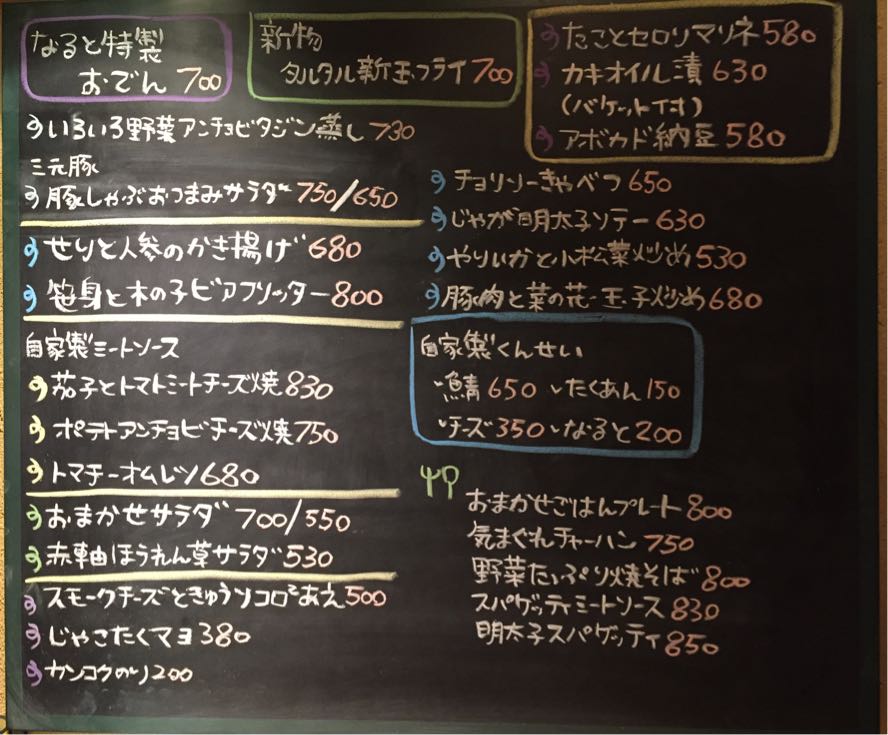 なると特製
おでん 700
新物
タルタル新玉フライ 700
たことセロリマリネ 580
カキオイル漬 630
(バケット付)
アボカド納豆 580
いろいろ野菜アンチョビタジン蒸し 730
三元豚
豚しゃぶおつまみサラダ 750/650
せりと人参のかき揚げ 680
笹身と木の子ビアフリッター 800
チョリソーきゃべつ 650
じゃが明太子ソテー 630
やりいかと小松菜炒め 530
豚肉と菜の花玉子炒め 680
自家製ミートソース
茄子とトマトミートチーズ焼 830
ポテトアンチョビチーズ焼 750
トマチーオムレツ 680
自家製くんせい
鯖 650 たくあん 150
チーズ 350 なると 200
おまかせサラダ 700/550
赤軸ほうれん草サラダ 530
スモークチーズときゅうりコロコロあえ 500
じゃこたくマヨ 380
カンコクのり 200
おまかせごはんプレート 800
気まぐれチャーハン 750
野菜たっぷり焼そば 800
スパゲッティミートソース 830
明太子スパゲッティ 850